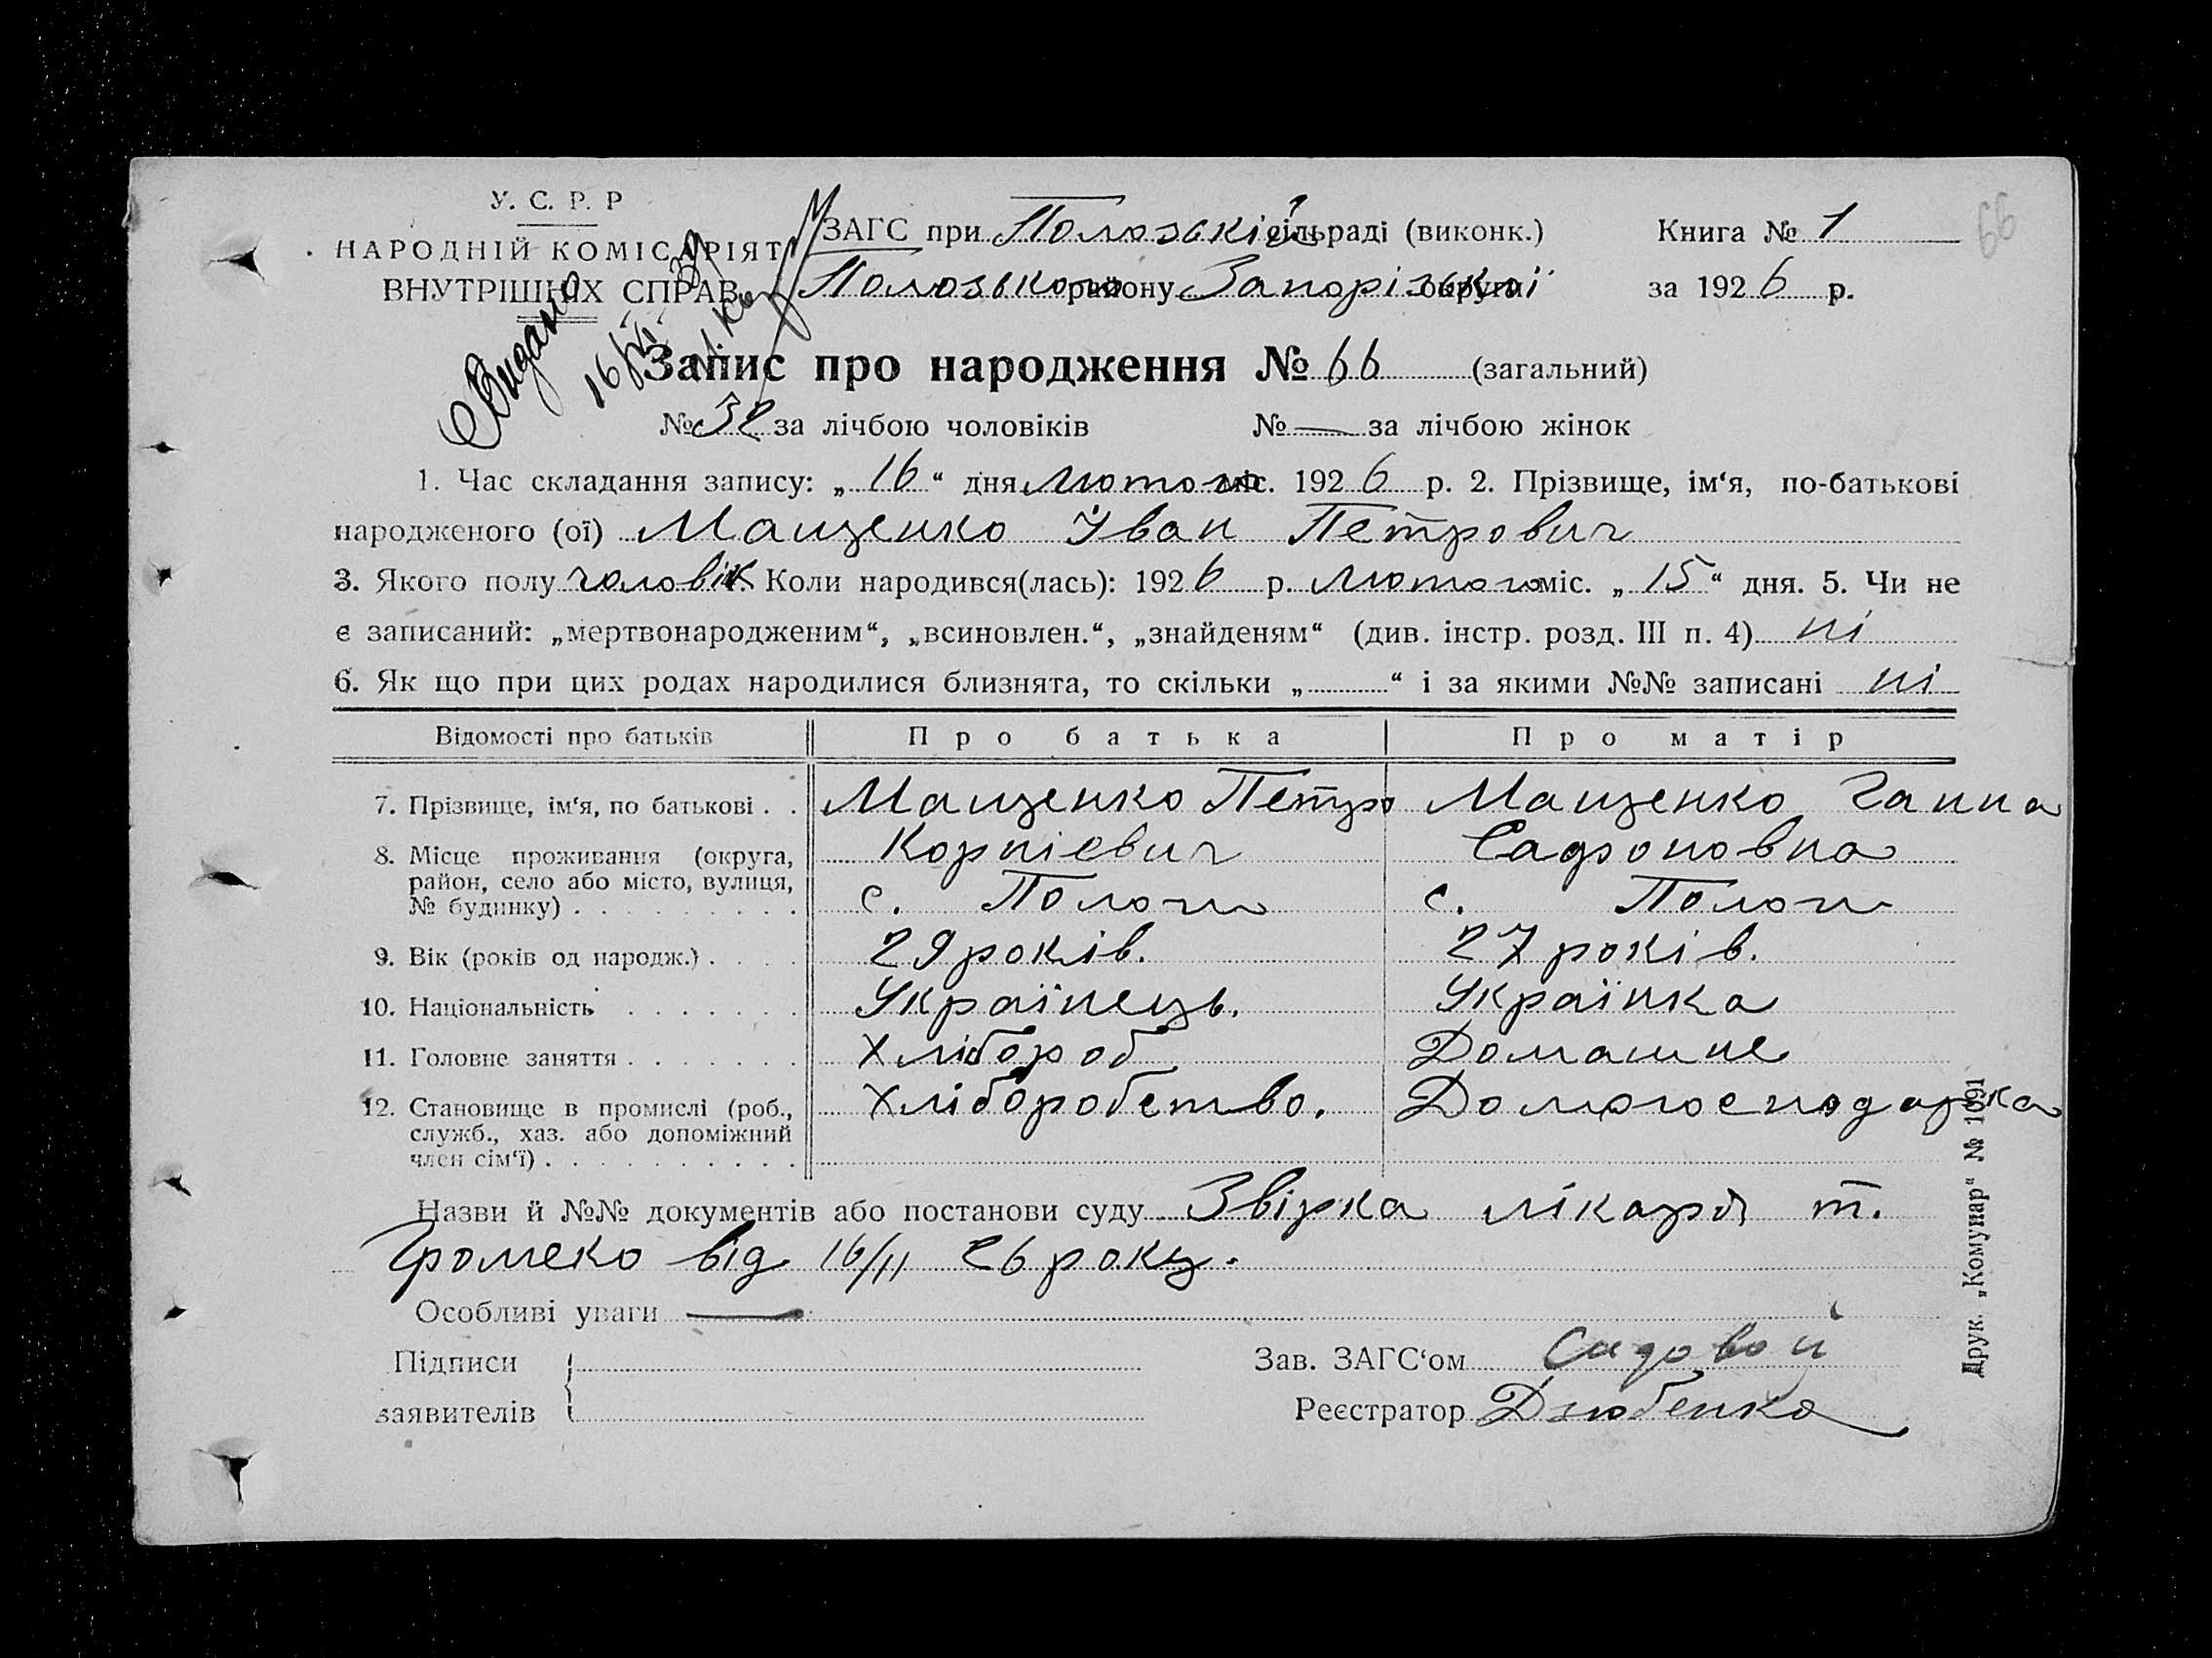 У. С. Р. Р
НАРОДНІЙ КОМІСАРІЯТ
ВНУТРІШНІХ СПРАВ
ЗАГС при Полозькій сільраді (виконк.)
Полозького району Запорізької округи
Книга № 1
за 1926 р.
66
Видано
Запис про народження № 66 (загальний)
№ 32 за лічбою чоловіків № — за лічбою жінок
1. Час складання запису: „16“ дня Лютого міс. 1926 р. 2. Прізвище, ім‘я, по-батькові
народженого (ої) Мащенко Іван Петрович
3. Якого полу чоловік. Коли народився(лась): 1926 р. Лютого міс. „15“ дня. 5. Чи не
є записаний: „мертвонародженим“, „всиновлен.“, „знайденям“ (див. інстр. розд. III п. 4) ні
6. Як що при цих родах народилися близнята, то скільки „ “ і за якими №№ записані ні
Відомості про батьків Про батька Про матір
7. Прізвище, ім‘я, по батькові . . Мащенко Петро Мащенко Ганна
Корнієвич Сафоновна
8. Місце проживання (округа,
район, село або місто, вулиця,
№ будинку) . . . . . . . . . с. Пологи с. Пологи
9. Вік (років од народж.) . . . . 29 років. 27 років.
10. Національність . . . . . . . Українець. Українка
11. Головне заняття . . . . . . . Хлібороб Домашне
12. Становище в промислі (роб., Хліборобство. Домогосподарка
служб., хаз. або допоміжний
член сім‘ї) . . . . . . . . . .
Назви й №№ документів або постанови суду Звірка лікаря т.
Громеко від 16/II 26 року.
Особливі уваги —
Підписи
заявителів
Зав. ЗАГС‘ом Садовой
Реєстратор Дзюбенко
Друк. „Комунар“ № 1091